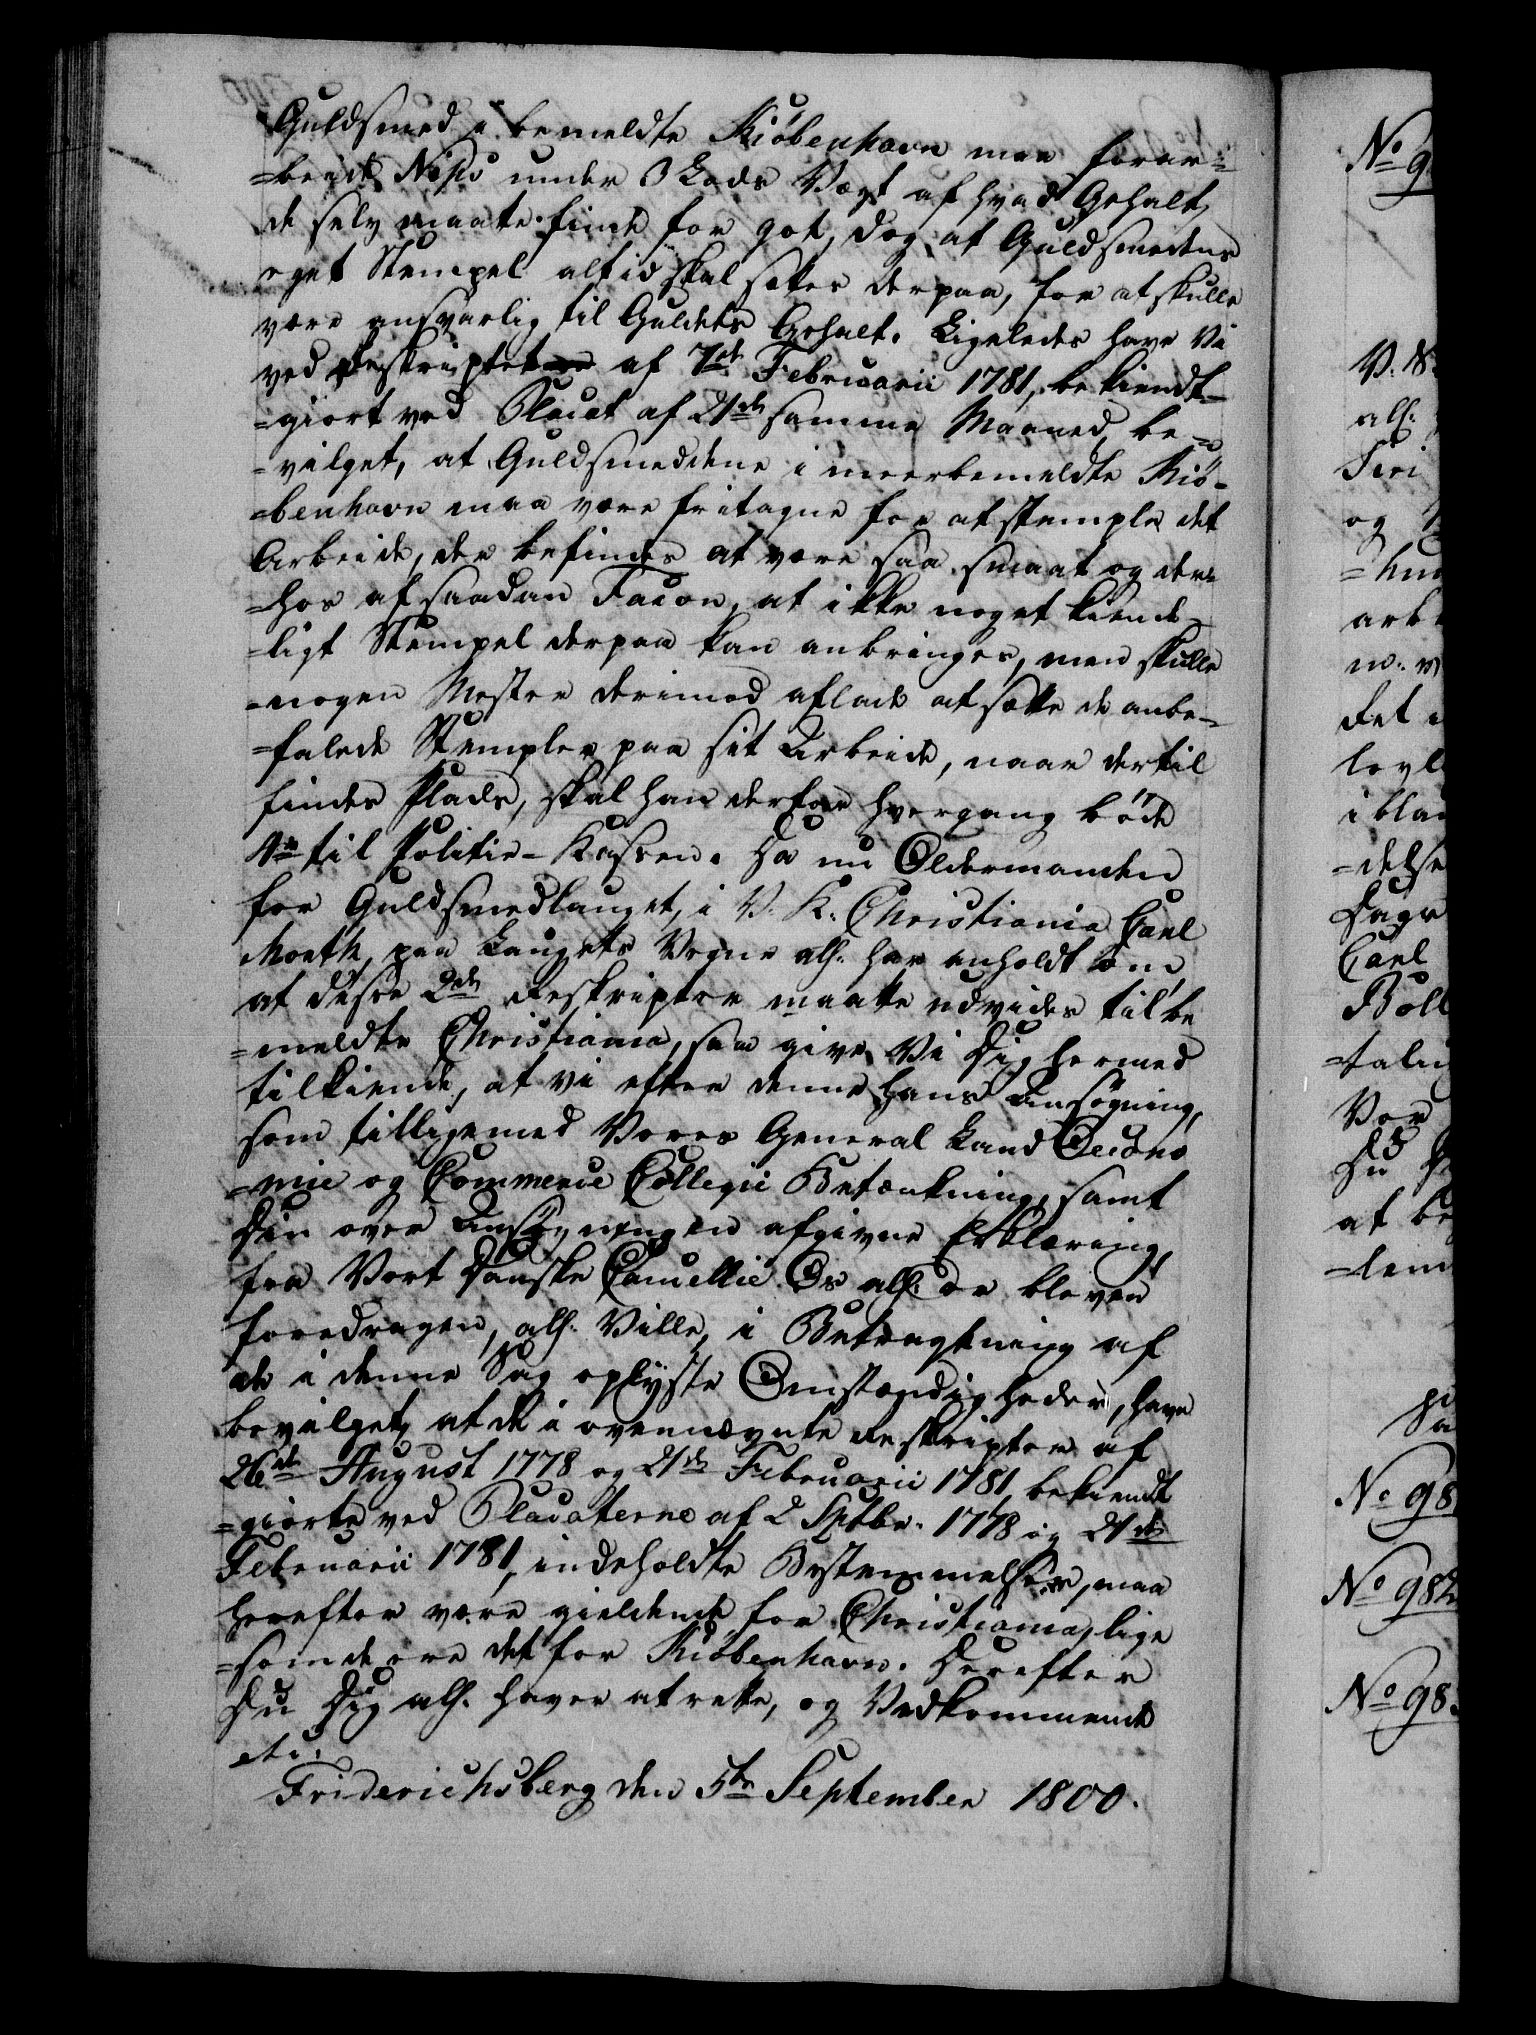 Guldsmed i bemeldte Kiöbenhavn maa forar-
=beide Nips under 3 Lods Vægt af hvad Gehalt
de selv maatte finde for got, dog at Guldsmedens
eget Stempel altid skal sættes derpaa, for at skulle
være ansvarlig til Guldets Gehalt. Ligeledes have Vi
ved Reskriptet af 7de Februarii 1781, bekiendt-
=giort ved Placat af 21de samme Maaned be-
=vilget, at Guldsmeddene i meerbemeldte Kiö-
=benhavn maa være fritagne for at stemple det
Arbeide, der befindes at være saa smaat og der-
=hos af saadan Facon, at ikke noget kiende-
=ligt Stempel derpaa kan anbringes, men skulle
=nogen Mester derimod aflade at sætte de anbe-
=falede Stempler paa sit Arbeide, naar dertil
findes Plads, skal han derfor hvergang bøde
til Politie-Kassen. Da nu Oldermanden
for Guldsmedlauget, i V. K. Christiania Carl
paa Laugets Vegne alh. har anholdt om
at disse 2de Reskripter maatte udvides til be
=meldte Christiania, saa give Vi Dig hermed
tilkiende, at vi efter denne hans Ansøgning,
som tilligemed Vores General Land Oecono
=mie og Commerce Collegii Betænkning, samt
Din over Ansøgningen afgivne Erklæring,
fra Vort Danske Cancellie Os alh. er bleven
foredragen, alh. Ville, i Betragtning af
de i denne Sag oplyste Omstændigheder, have
bevilget, at de i ovennævnte Reskripter af
26de August 1778 og 21de Februarii 1781, bekiendt
=giorte ved Placaterne af 2 Septbr. 1778 og 21de
Februarii 1781, indeholdte Bestemmelser, maa
herefter være gieldende for Christiania, lige
=som de ere det for Kiöbenhavn. Derefter
Du Dig alh. haver at rette, og Vedkommende
etc.
Friderichsberg den 5te September 1800.
No 9
V. K.
alh.
og
det
i blan
=delse
Dage
Carl
Vor
Du
at be
No 98
No 982
No 98